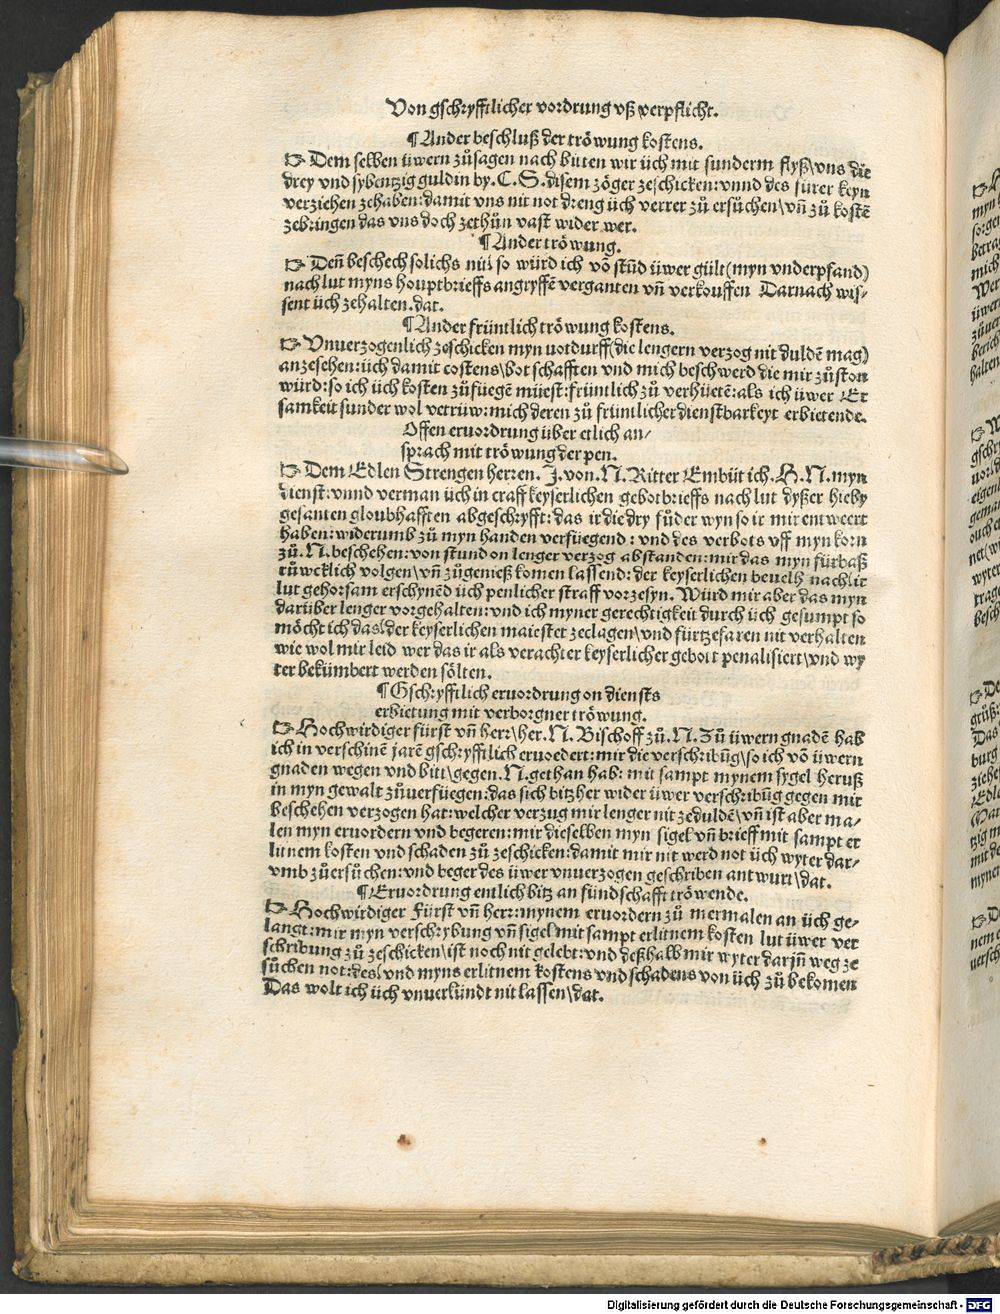 Von gschryfftlicher vordrung vß verpflicht.
¶ Ander beschluß der tröwung kostens.
☞ Dem selben üwern zůsagen nach bitten wir üch mit sunderm flyß\vns die
drey vnd sybentzig guldin by. C. S. disem zöger zeschicken: vnnd des fürer keyn
verziehen zehaben: damit vns nit not dreng üch verrer zů ersůchen\vñ zů kostē
zebringen das vns doch zethůn vast wider wer.
¶ Ander tröwung.
☞ Deñ beschech solichs nit\ so würd ich vō stūd üwer gült (myn vnderpfand)
nach lut myns houptbrieffs angryffē verganten vñ verkouffen Darnach wis⸗
sent üch zehalten. dat.
¶ Ander früntlich tröwung kostens.
☞ Vnuerzogenlich zeschicken myn notdurff (die lengern verzog nit duldē mag)
anzesehen: üch damit costens\botschafften vnd mich beschwerd die mir zůston
würd: so ich üch kosten zůfuegē müest: früntlich zů verhüetē: als ich üwer Er
samkeit sunder wol vetrüw: mich deren zů früntlicher dienstbarkeyt erbietende.
Offen eruordrung über etlich an⸗
sprach mit tröwung der pen.
☞ Dem Edlen Strengen herren. J. von. N. Ritter Embüt ich. H. N. myn
dienst: vnnd verman üch in crafft keyserlichen gebotbrieffs nach lut dyßer hieby
gesanten gloubhafften abgeschryfft: das ir die dry fůder wyn so ir mir entweert
haben: widerumb zů myn handen verfüegend: vnd des verbots vff myn korn
zů. N. beschehen: von stund on lenger verzog abstanden: mir das myn fürbaß
růwcklich volgen\vñ zůgenieß komen lassend: der keyserlichen beuelh nach\ir
lut gehorsam erschynēd üch penlicher straff vorzesyn. Würd mir aber das myn
darüber lenger vorgehalten: vnd ich myner gerechtigkeit durch üch gesumpt so
möcht ich das\der keyserlichen maiestet zeclagen\vnd fürtzefaren nit verhalten
wie wol mir leid wer das ir als verachter keyserlicher gebott penalisiert\vnd wy
ter bekümbert werden sölten.
¶ Gschryfftlich eruordrung on diensts
erbietung mit verborgner tröwung.
☞ Hochwirdiger fürst vñ herr\her. N. Bischoff zů. N. Zů üwern gnadē hab
ich in verschinē jarē gschryfftlich eruoedert: mir die verschribūg\so ich vō üwern
gnaden wegen vnd bitt\gegen. N. gethan hab: mit sampt mynem sygel heruß
in myn gewalt zůuerfüegen: das sich bitzher wider üwer verschribūg gegen mir
beschehen verzogen hat: welcher verzug mir lenger nit zeduldē\vñ ist aber ma⸗
len myn eruordern vnd begeren: mir dieselben myn sigel vñ brieff mit sampt er
litnem kosten vnd schaden zů zeschicken: damit mir nit werd not üch wyter dar⸗
vmb zůersůchen: vnd beger des üwer vnuerzogen geschriben antwurt\dat.
¶ Eruordrung entlich bitz an fündschafft tröwende.
☞ Hochwirdiger Fürst vñ herr: mynem eruordern zů mermalen an üch ge⸗
langt: mir myn verschrybung vñ sigel mit sampt erlitnem kosten lut üwer ver
schribung zů zeschicken\ist noch nit gelebt: vnd deßhalb mir wyter darjñ weg ze
sůchen not: des\vnd myns erlitnem kostens vnd schadens von üch zů bekomen
Das wolt ich üch vnuerkündt nit lassen\dat.
Digitalisierung gefördert durch die Deutsche Forschungsgemeinschaft - DFG